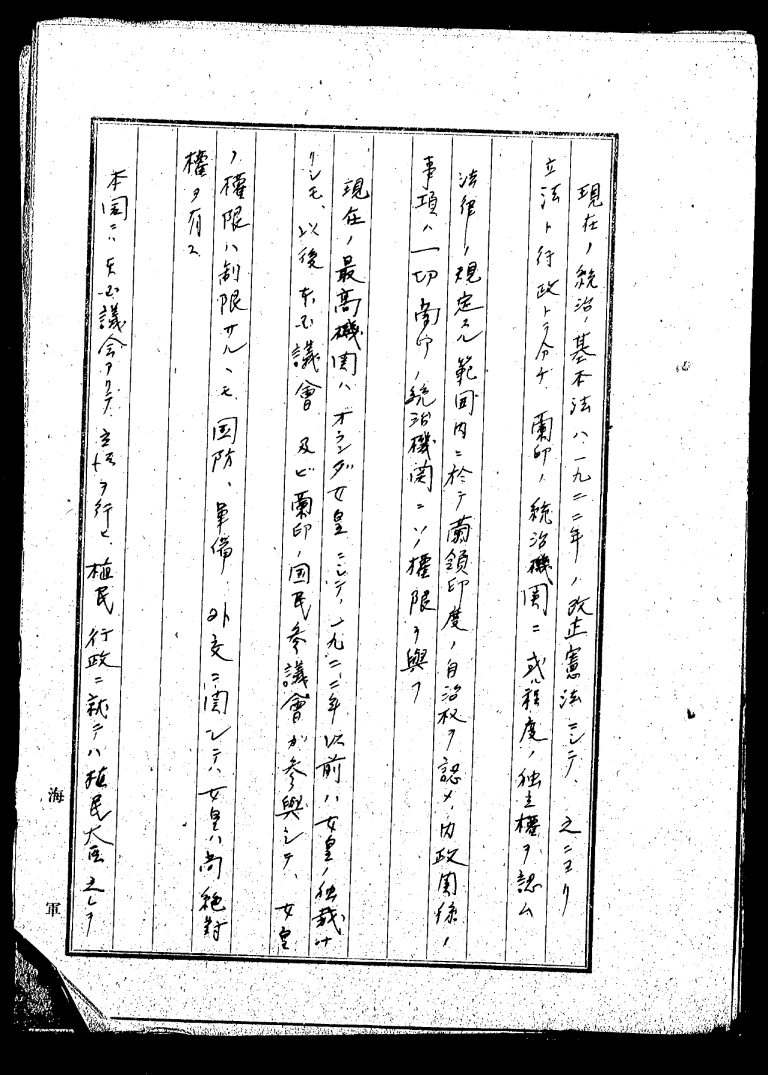 現在ノ統治ノ基本法ハ一九二二年ノ改正憲法ニシテ、之ニヨリ
立法ト行政トヲ分チ 蘭印ノ統治機関ニ或ル程度ノ独立權ヲ認ム
法律ノ規定スル範囲内ニ於テ蘭領印度ノ自治权ヲ認メ、内政関係ノ
事項ハ一切蘭印ノ統治機関ニソノ權限ヲ與フ
現在ノ最高機関ハオランダ女皇ニシテ、一九二二年以前ハ女皇ノ独裁ナ
リシモ、以後本国議會 及ビ蘭印ノ国民参議會ガ参與シテ、女皇
ノ權限ハ制限サルヽモ 国防、軍備、外交ニ関シテハ女皇ハ尚絶対
權ヲ有ス
本国ニハ本国議会アリテ 立法ヲ行ヒ 植民行政ニ就テハ植民大臣之レヲ
海軍